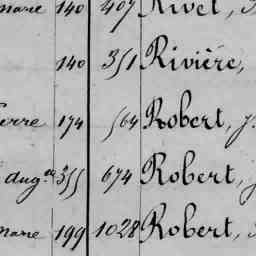 140 407 Rivet,
140 351 Rivière,
174 564 Robert, J.
355 674 Robert, J
199 1028 Robert,